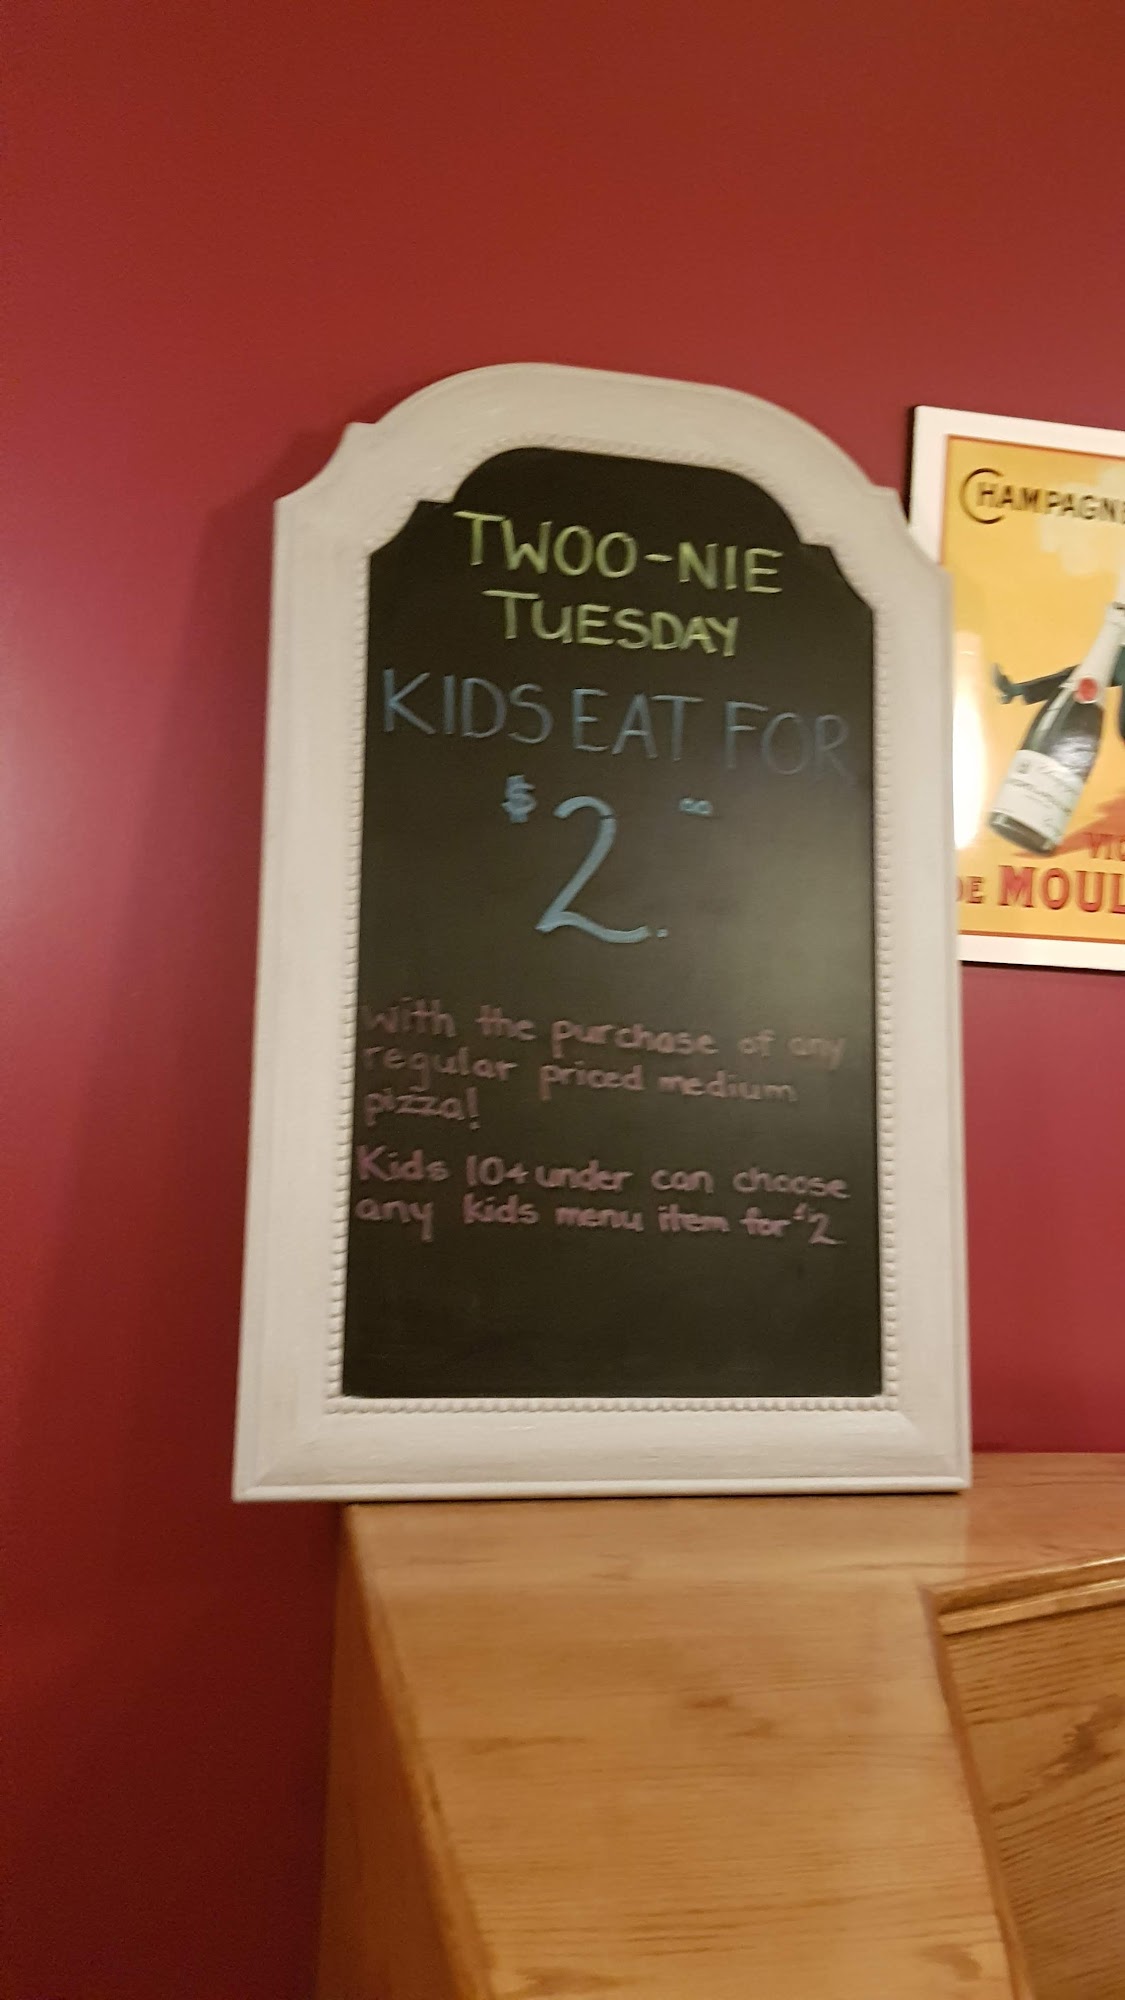 TWOO-NIE
TUESDAY
KIDS EAT FOR
$2.00
with the purchase of any
regular priced medium
pizza!
Kids 10+under can choose
any kids menu item for $2
CHAMPAGNE
DE MOUL